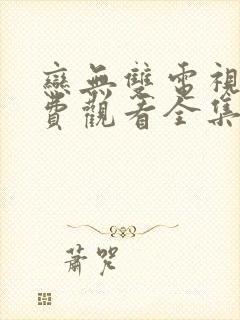 戀無雙電視
費觀看全集
蕭咒